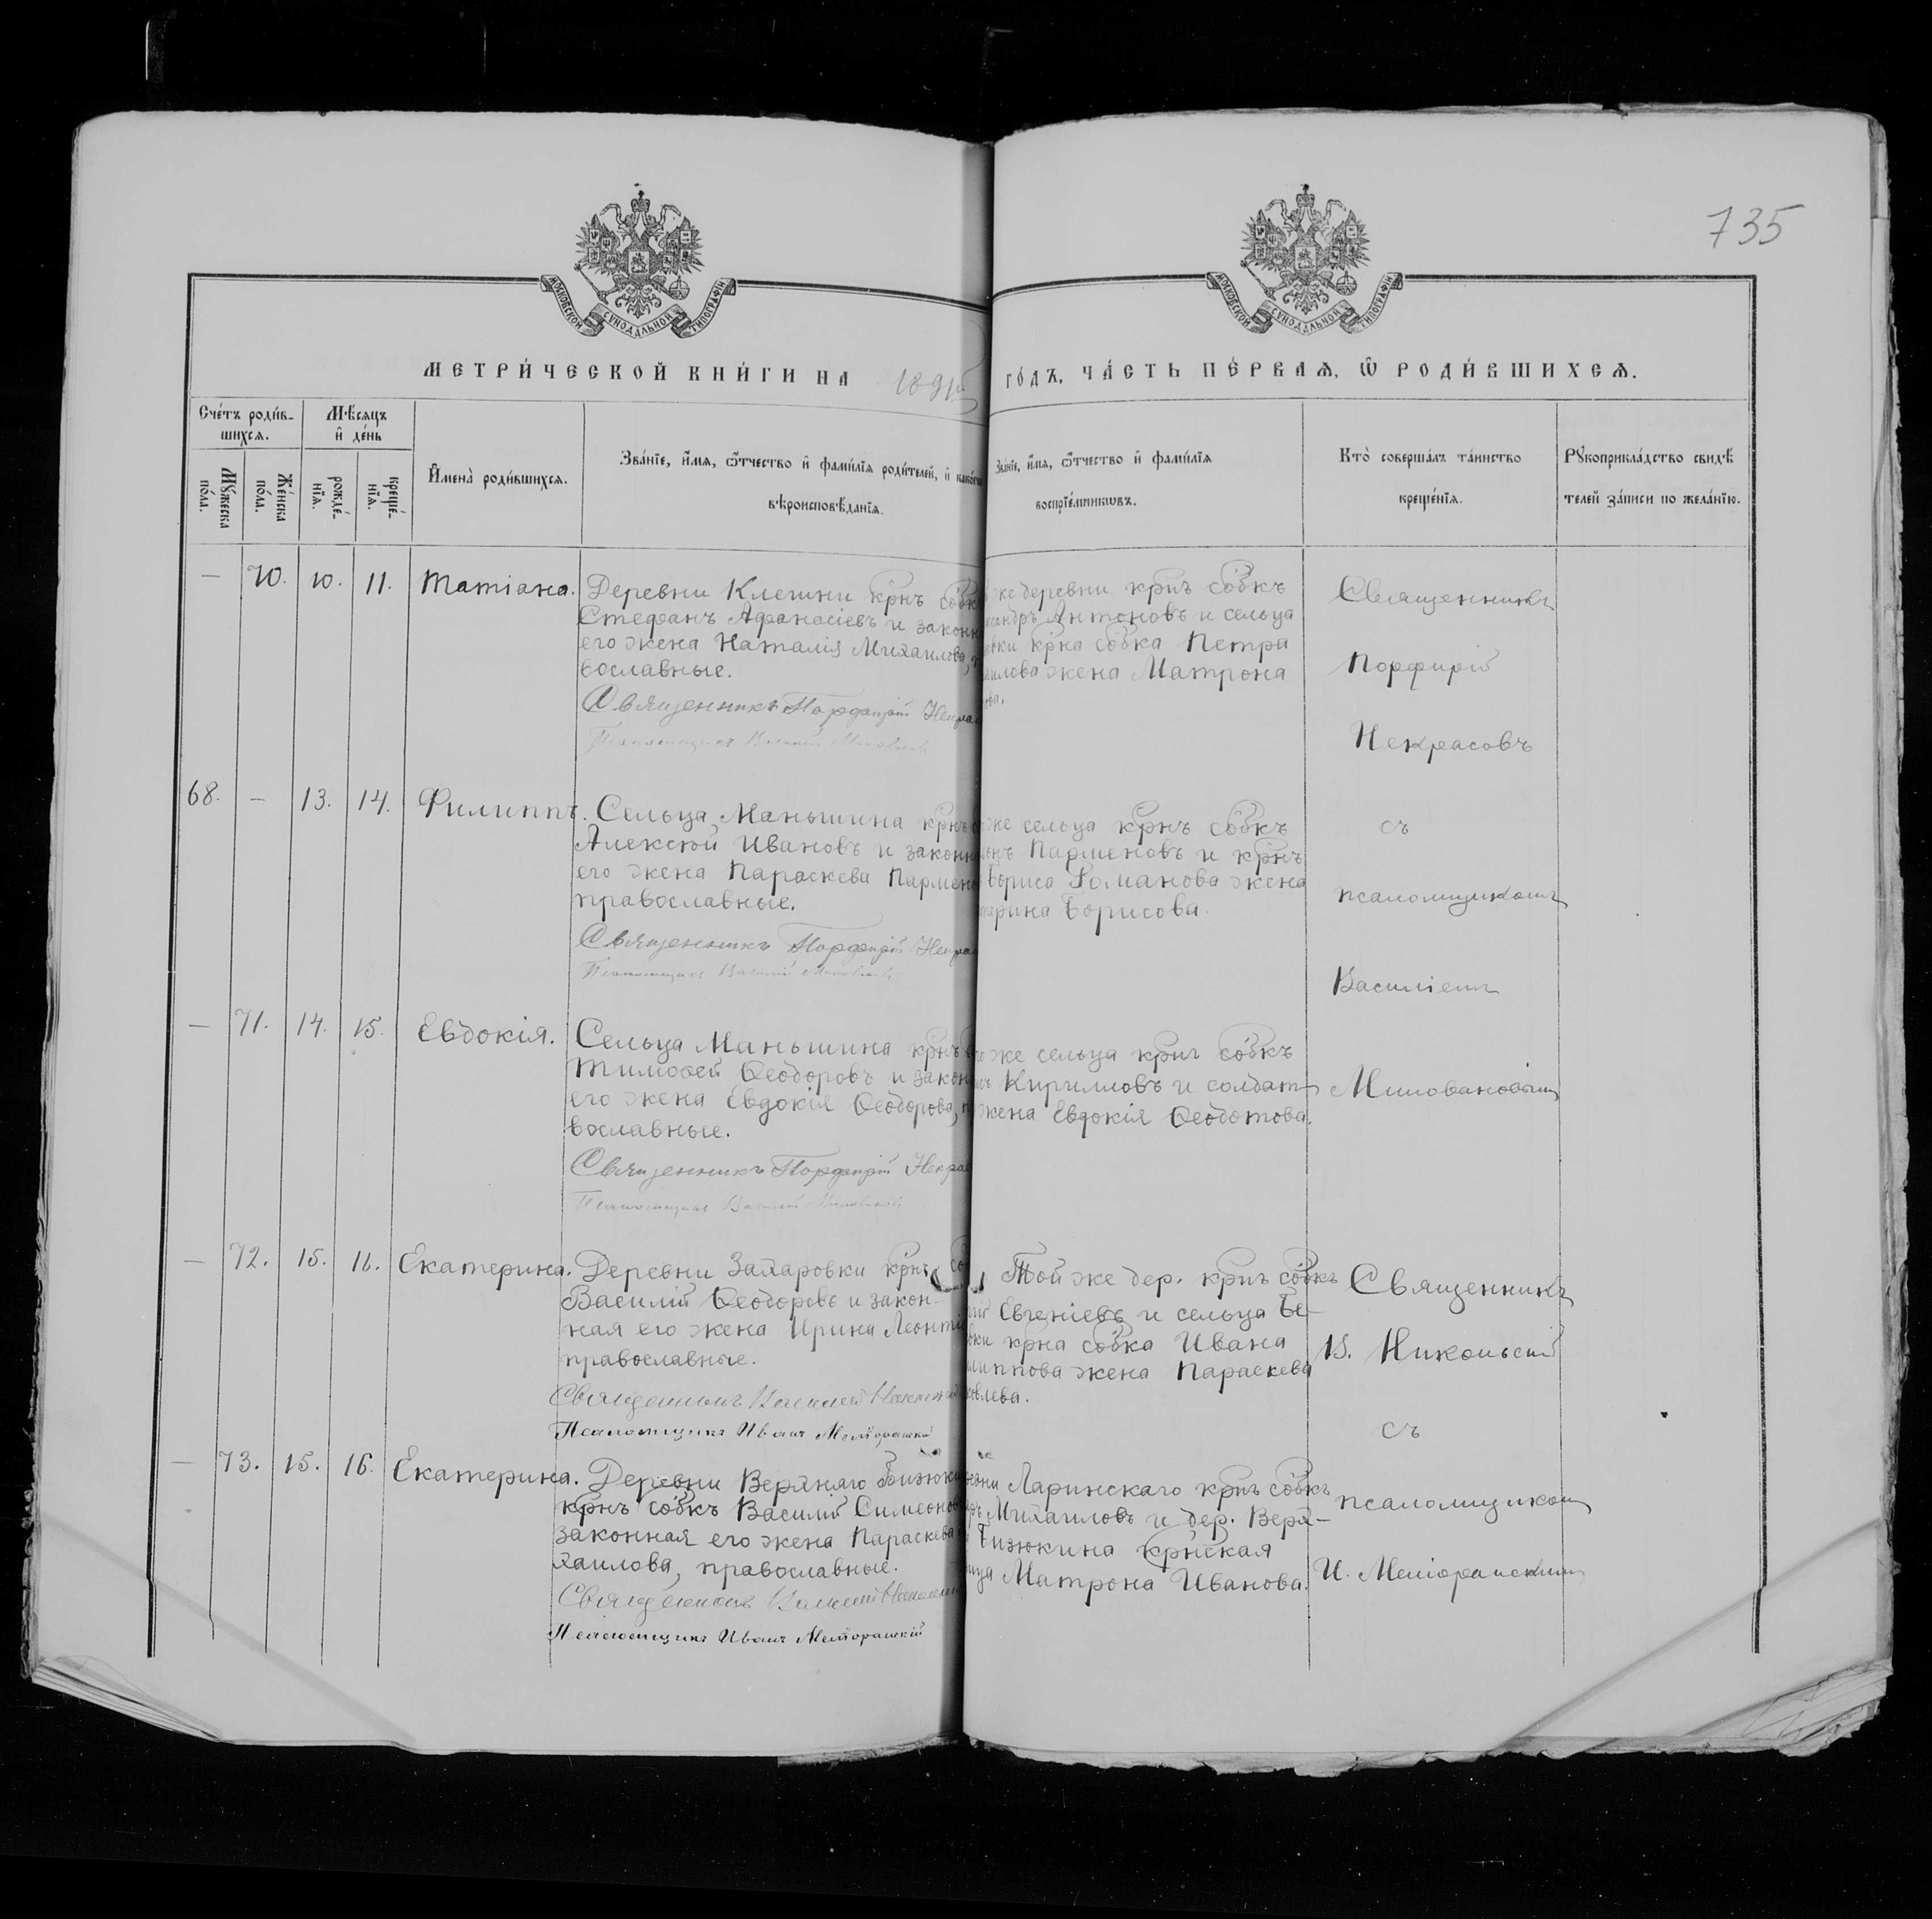 735
МОСКОВСКОЙ СѴНОДАЛЬНОЙ ТИПОГРАФІИ
МОСКОВСКОЙ СѴНОДАЛЬНОЙ ТИПОГРАФІИ
МЕТРИ́ЧЕСКОЙ КНИ́ГИ НА
ГО́ДЪ, ЧА́СТЬ ПЕ́РВАѦ, Ѽ РОДИ́ВШИХСѦ.
Сче́тъ роди́в-
шихсѧ.
Мѣ́сѧцъ
и҆ де́нь
Мꙋ́жеска
по́ла.
Же́нска
по́ла.
рожде́-
нїѧ.
креще́-
нїѧ.
И҆мена̀ роди́вшихсѧ.
Зва́нїе, и҆́мѧ, ѻ҆́тчество и҆ фамі́лїѧ роди́телей, и҆ како́гѡ
вѣроисповѣ́данїѧ.
Зва́нїе, и҆́мѧ, ѻ҆́тчество и҆ фамі́лїѧ
воспрїе́мникѡвъ.
Кто̀ соверша́лъ та́инство
креще́нїѧ.
Рꙋкоприкла́дство свидѣ́-
телей за́писи по жела́нїю.
— 70. 10. 11. Татіана.
Деревни Клешни крнъ собк
Стефанъ Аѳанасіевъ и законн
его жена Наталія Михаилова,
вославные.
Священникъ Порфирій Некрас
же деревни крнъ собкъ
Антоновъ и сельца
крна собка Петра
жена Матрона
Священникъ
Порфирій
Некрасовъ
съ
псаломщикомъ
Василіемъ
Миловановымъ
68. — 13. 14. Филиппъ.
Сельца Маньшина крнъ
Алексѣй Ивановъ и законн
его жена Параскева Пармено
православные.
Священникъ Порфирій Некрас
же сельца крнъ собкъ
Парменовъ и крнъ
Бориса Романова жена
терина Борисова.
— 71. 14. 15. Евдокія.
Сельца Маньшина крнъ
Тимоѳей Ѳеодоровъ и закон
его жена Евдокія Ѳеодорова,
вославные.
Священникъ Порфирій Некрас
же сельца крнъ собкъ
Кирилловъ и солдат
жена Евдокія Ѳеодотова.
— 72. 15. 16. Екатерина.
Деревни Захаровки крнъ со
Василій Ѳеодоровъ и закон-
ная его жена Ирина Леонті
православные.
Священникъ Василій Никольскій
Псаломщикъ Иванъ Меліоранскій
Той же дер. крнъ собкъ
Евгеніевъ и сельца Бе-
крна собка Ивана
липпова жена Параскева
влева.
Священникъ
В. Никольскій
съ
псаломщикомъ
И. Меліоранскимъ
— 73. 15. 16. Екатерина.
Деревни Верхняго Бизюки
крнъ собкъ Василій Симеонов
законная его жена Параскева
хаилова, православные.
Священникъ Василій Никольскій
Псаломщикъ Иванъ Меліоранскій
Ларинскаго крнъ собкъ
Михаиловъ и дер. Верх-
Бизюкина крнская
Матрона Иванова.